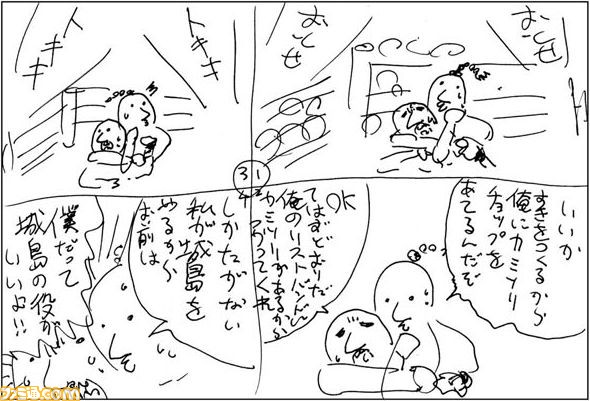 おとせ
おとせ
ドキキ
ドキキ
3 1
4 2
いいか
すきをつくるから
俺にカミソリ
チョップを
あてるんだぞ
OK
てはずどおりだ
俺のリストバンドに
カミソリがあるから
しかたがない
私が城島を
やるから
お前は
僕だって
城島の役が
いいよ!!
ファミ通.com